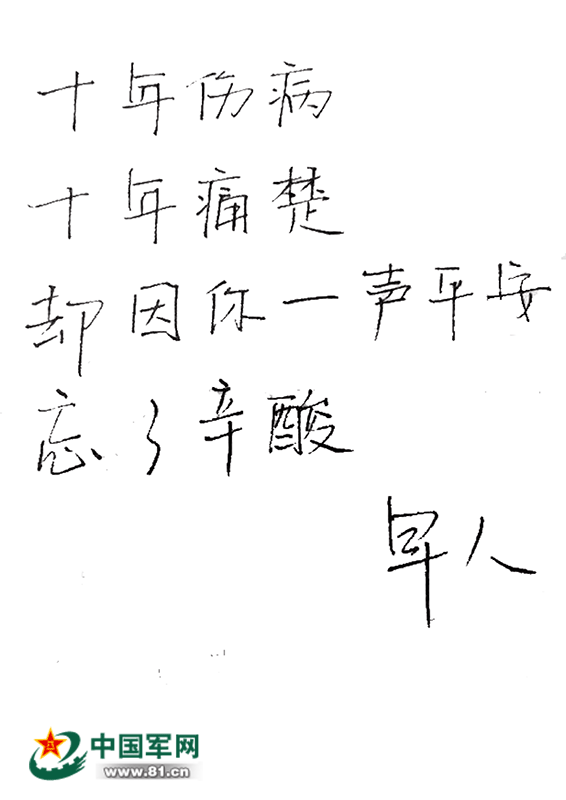 十年伤病
十年痛楚
却因你一声平安
忘了辛酸
早人
中国军网
www.81.cn